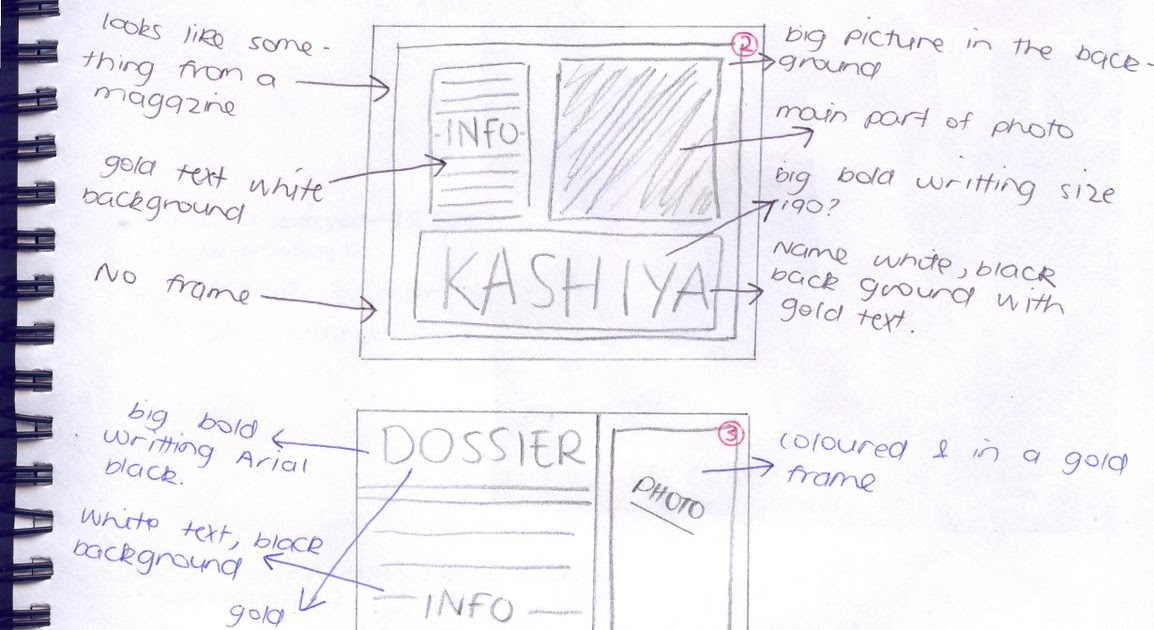 looks like some-
thing from a
magazine
gold text white
background
No frame
2
INFO
KASHIYA
big picture in the back-
ground
main part of photo
big bold writting size
190?
Name white, black
back ground with
gold text.
big bold
writting Arial
black.
white text, black
background
gold
DOSSIER
INFO
3
PHOTO
coloured & in a gold
frame